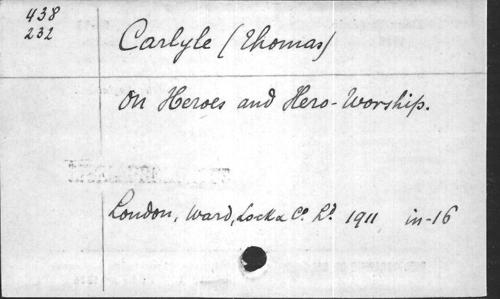 438
232
Carlyle (Thomas)
On Heroes and Hero-Worship.
London, Ward, Lock & Cº Lᵈ. 1911 in-16